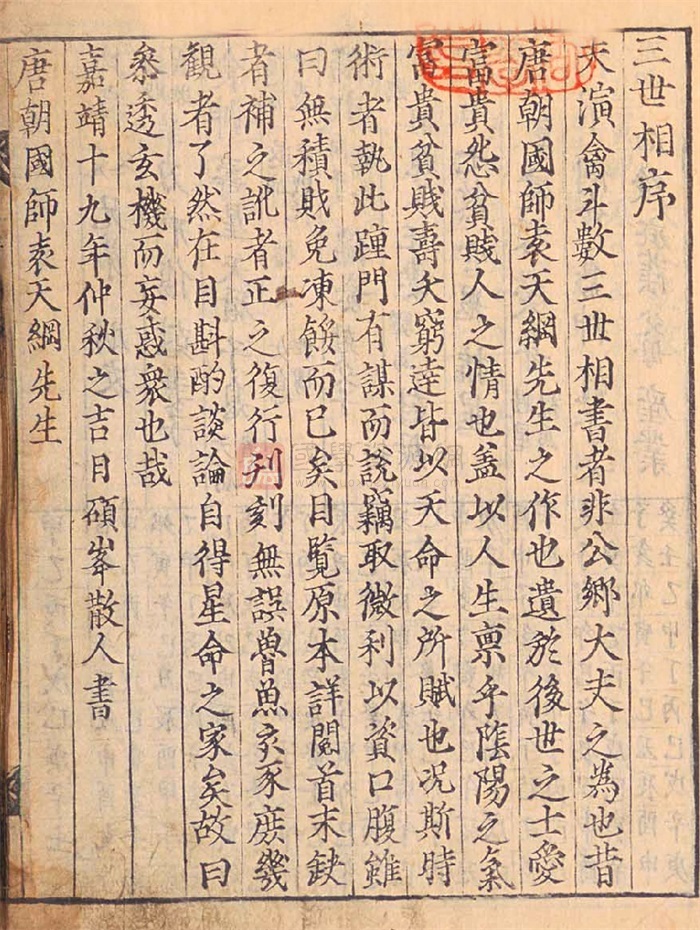 三世相序
天演禽斗數三世相書者非公鄉大夫之為也昔
唐朝國師袁天綱先生之作也遺於後世之士愛
富貴怨貧賤人之情也盖以人生禀乎隂陽之氣
富貴貧賤壽夭窮達皆以天命之所賦也况斯時
術者執此踵門有謀而說竊取微利以資口腹雖
曰無積財免凍餒而已矣目覽原本詳閱首末缺
者補之訛者正之復行刋刻無誤魯魚亥豕庶幾
觀者了然在目斟酌談論自得星命之家矣故曰
叅透玄機而妄惑衆也哉
嘉靖十九年仲秋之吉日碩峯散人書
唐朝國師袁天綱先生